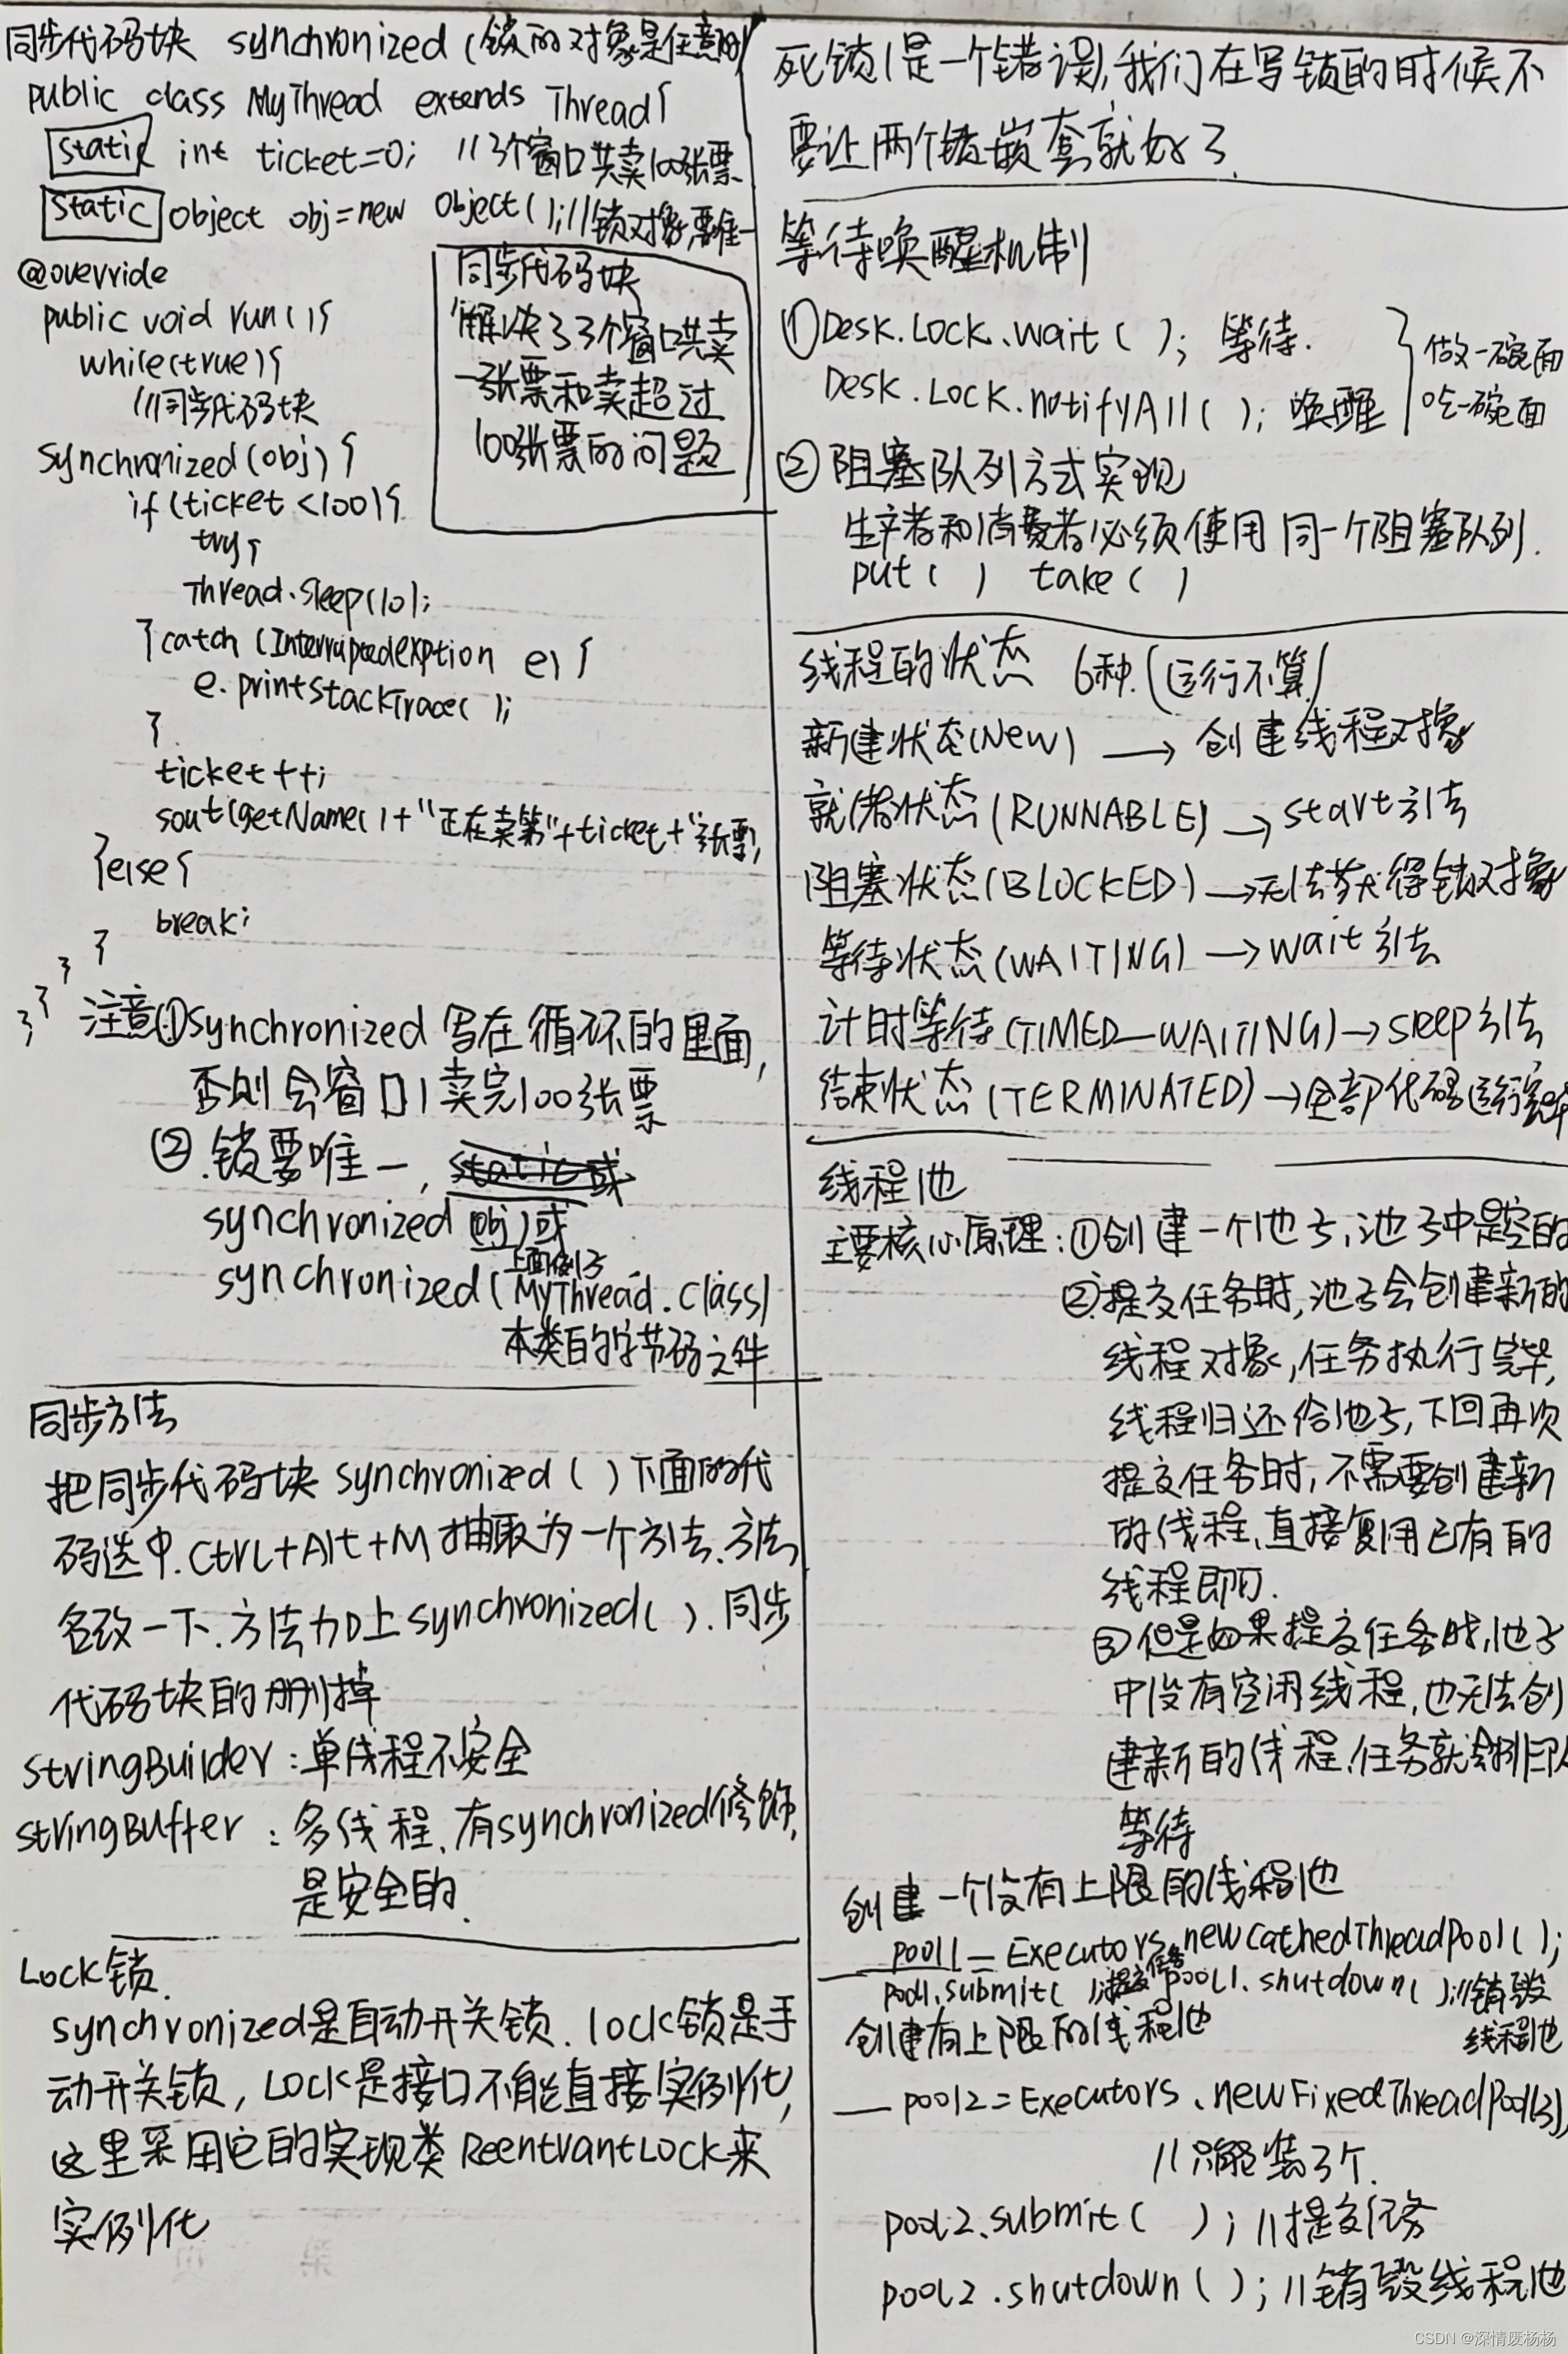 同步代码块 synchronized(锁的对象是任意的)
public class MyThread extends Thread{
static int ticket=0; //3个窗口共卖100张票
static object obj=new object();//锁对象,要唯一
@override
public void run(){
while(true){
//同步代码块
synchronized(obj){
if(ticket<100){
try{
Thread.sleep(10);
}catch(InterruptedexPtion e){
e.printStackTrace();
}
ticket++;
sout(getName()+"正在卖第"+ticket+"张票);
}else{
break;
}
}
}
}
同步代码块
解决了3个窗口共卖
一张票和卖超过
100张票的问题
注意①synchronized写在循环的里面,
否则会窗口1卖完100张票
②.锁要唯一, static或
synchronized obj)或
上面例子
synchronized(MyThread.class)
本类的字节码文件
同步方法
把同步代码块synchronized()下面的代
码选中.Ctrl+Alt+M抽取为一个方法.方法
名改一下.方法加上synchronized().同步
代码块的删掉
StringBuilder:单线程不安全
StringBuffer:多线程.有synchronized修饰,
是安全的.
Lock锁.
synchronized是自动开关锁.lock锁是手
动开关锁,Lock是接口不能直接实例化,
这里采用它的实现类ReentrantLock来
实例化
死锁(是一个错误),我们在写锁的时候不
要让两个锁嵌套就好了.
等待唤醒机制
①Desk.Lock.wait(); 等待.
Desk.Lock.notifyAll(); 唤醒
做一碗面
吃一碗面
②阻塞队列方式实现
生产者和消费者必须使用同一个阻塞队列.
put() take()
线程的状态 6种.(运行不算)
新建状态(New)→创建线程对象
就绪状态(RUNNABLE)→start方法
阻塞状态(BLOCKED)→无法获得锁对象
等待状态(WAITING)→wait方法
计时等待(TIMED_WAITING)→sleep方法
结束状态(TERMINATED)→全部代码运行完毕
线程池
主要核心原理:①创建一个池子,池子中是空的
②提交任务时,池子会创建新的
线程对象,任务执行完毕,
线程归还给池子,下回再次
提交任务时,不需要创建新
的线程,直接复用已有的
线程即可.
③但是如果提交任务时,池子
中没有空闲线程,也无法创
建新的线程.任务就会排队
等待
创建一个没有上限的线程池
pool1=Executors.newCathedThreadPool();
pool1.submit();//提交任务 pool1.shutdown();//销毁
线程池
创建有上限的线程池
pool2=Executors.newFixedThreadPool(3);
//只能装3个.
pool2.submit( );//提交任务
pool2.shutdown();//销毁线程池
CSDN @深情废杨杨